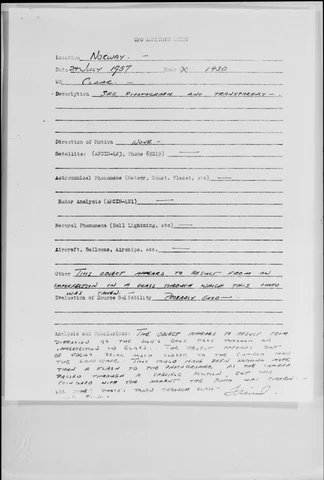 UFO ANALYSIS SHEET
Location NORWAY. —
Date 24 JULY 1957 Time 1930
WX CLEAR. —
Description SEE PHOTOGRAPH AND TRANSPARENCY —
Direction of Motion NONE —
Satellite: (AFCIN-4F3, Phone 69219) —
Astronomical Phenomena (Meteor, Comet, Planet, etc) —
Radar Analysis (AFCIN-4E1) —
Natural Phenomena (Ball Lightning, etc) —
Aircraft, Balloons, Airships, etc. —
Other THIS OBJECT APPEARS TO RESULT FROM AN
IMPERFECTION IN A GLASS THROUGH WHICH THIS PHOTO
WAS TAKEN. —
Evaluation of Source Reliability PROBABLY GOOD —
Analysis and Conclusions: THE OBJECT APPEARS TO RESULT FROM
OF THE SUN'S RAYS PASS THROUGH AN
IMPERFECTION IN GLASS. THE OBJECT APPEARS OUT
OF FOCUS BEING MUCH CLOSER TO THE CAMERA THAN
THE LANDSCAPE. THIS COULD HAVE BEEN NOTHING MORE
THAN A FLASH TO THE PHOTOGRAPHER AS THE CAMERA
PASSED THROUGH A SPECIFIC POSITION, BUT THIS
WITH THE MOMENT THE PHOTO WAS
TAKEN THROUGH GLASS